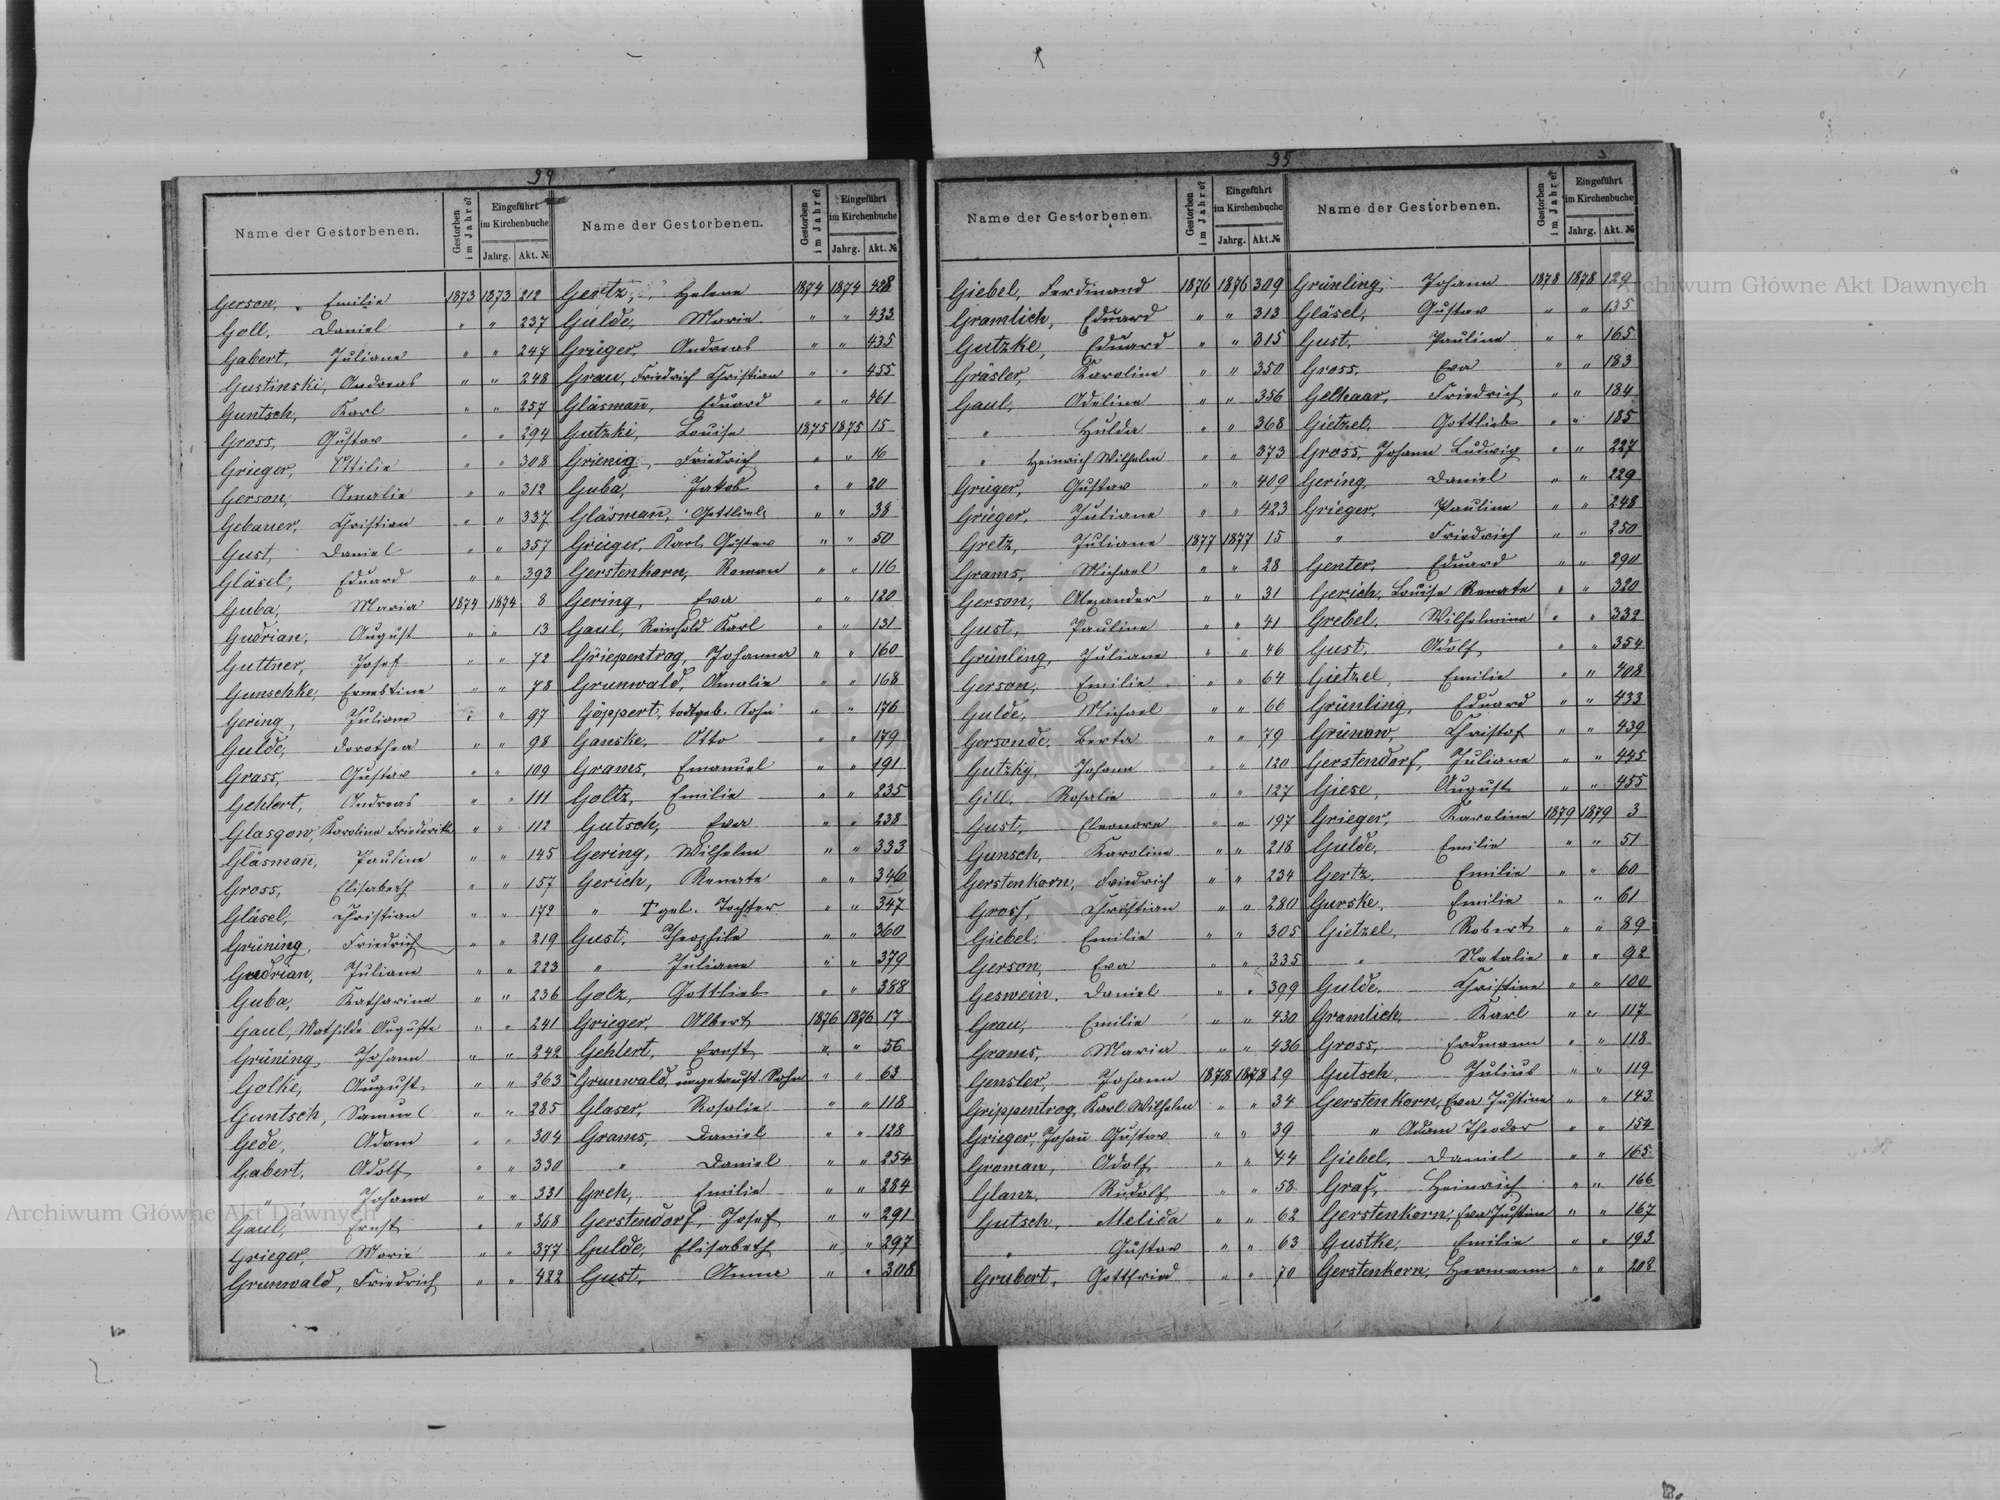 94
Name der Gestorbenen. Gestorben im Jahre? Eingeführt im Kirchenbuche Jahrg. Akt. №
Gerson, Emilie 1873 1873 212
Goll, Daniel " " 237
Gabert, Juliane " " 247
Gustinski, Andreas " " 248
Guntsch, Karl " " 257
Gross, Gustav " " 294
Grieger, Ottilie " " 308
Gerson, Amalie " " 312
Gebauer, Christian " " 337
Gust, Daniel " " 357
Gläsel, Eduard " " 393
Guba, Maria 1874 1874 8
Gudrian, August " " 13
Guttner, Josef " " 72
Gunschke, Ernestine " " 78
Gering, Juliane " " 97
Gulde, Dorothea " " 98
Grass, Gustav " " 109
Gehlert, Andreas " " 111
Glasgow, Karoline Friederike " " 112
Gläsman̅, Pauline " " 145
Gross, Elisabeth " " 157
Gläsel, Christian " " 172
Grüning, Friedrich " " 219
Gudrian, Juliane " " 223
Guba, Katharine " " 236
Gaul, Mathilde Auguste " " 241
Grüning, Johann " " 242
Golke, August " " 263
Guntsch, Samuel " " 285
Gede, Adam " " 304
Gabert, Adolf " " 330
" Johann " " 331
Gaul, Ernst " " 368
Grieger, Marie " " 377
Grunwald, Friedrich " " 422
Name der Gestorbenen. Gestorben im Jahre? Eingeführt im Kirchenbuche Jahrg. Akt. №
Gertz, Helene 1874 1874 428
Gulde, Marie " " 433
Grüger, Andreas " " 435
Grau, Friedrich Christian " " 455
Gläsman̅, Eduard " " 461
Gutzki, Louise 1875 1875 15
Grienig, Friedrich " " 16
Guba, Jakob " " 20
Gläsman̅, Gottlieb " " 38
Grieger, Karl Gustav " " 50
Gerstenkorn, Roman " " 116
Gering, Eva " " 120
Gaul, Reinhold Karl " " 131
Griepentrog, Johanna " " 160
Grunwald, Amalie " " 168
Göppert, todtgeb. Sohn " " 176
Ganske, Otto " " 179
Grams, Emanuel " " 191
Goltz, Emilie " " 235
Gutsch, Eva " " 238
Gering, Wilhelm " " 333
Gerich, Renate " " 346
" T geb. Tochter " " 347
Gust, Theophile " " 360
" Juliane " " 379
Golz, Gottlieb " " 388
Grieger, Albert 1876 1876 17
Gehlert, Ernst " " 56
Grunwald, ungetauft. Sohn " " 63
Glaser, Rosalie " " 118
Grams, Daniel " " 128
" Daniel " " 254
Greh, Emilie " " 284
Gerstendorf, Josef " " 291
Gulde, Elisabeth " " 297
Gust, Anna " " 308
95
Name der Gestorbenen. Gestorben im Jahre? Eingeführt im Kirchenbuche Jahrg. Akt.№
Giebel, Ferdinand 1876 1876 309
Gramlich, Eduard " " 313
Gutzke, Eduard " " 315
Gräsler, Karoline " " 350
Gaul, Adeline " " 356
" Hulda " " 368
" Heinrich Wilhelm " " 373
Grüger, Gustav " " 409
Grieger, Juliane " " 423
Gretz, Juliane 1877 1877 15
Grams, Michael " " 28
Gerson, Alexander " " 31
Gust, Pauline " " 41
Grünling, Juliane " " 46
Gerson, Emilie " " 64
Gulde, Michael " " 66
Gersonde, Berta " " 79
Gutzky, Johann " " 120
Gill, Rosalie " " 127
Gust, Eleonore " " 197
Gunsch, Karoline " " 218
Gerstenkorn, Friedrich " " 234
Gross, Christian " " 280
Giebel, Emilie " " 305
Gerson, Eva " " 335
Geswein, Daniel " " 399
Grau, Emilie " " 430
Grams, Maria " " 436
Gensler, Johann 1878 1878 29
Grippentrog, Karl Wilhelm " " 34
Grieger, Johan̅ Gustav " " 39
Groman, Adolf " " 44
Glanz, Rudolf " " 58
Gutsch, Melida " " 62
" Gustav " " 63
Grubert, Gottfried " " 70
Name der Gestorbenen. Gestorben im Jahre? Eingeführt im Kirchenbuche Jahrg. Akt. №
Grünling, Johann 1878 1878 129
Gläsel, Gustav " " 135
Gust, Pauline " " 165
Gross, Eva " " 183
Gelhaar, Friedrich " " 184
Gietzel, Gottlieb " " 185
Gross, Johann Ludwig " " 227
Gering, Daniel " " 229
Grieger, Pauline " " 248
" Friedrich " " 250
Genter, Eduard " " 290
Gerich, Louise Renate " " 320
Grebel, Wilhelmine " " 332
Gust, Adolf " " 354
Gietzel, Emilie " " 408
Grünling, Eduard " " 433
Grunow, Christof " " 439
Gerstendorf, Juliane " " 445
Giese, August " " 455
Grieger, Karoline 1879 1879 3
Gulde, Emilie " " 51
Gertz, Emilie " " 60
Gurske, Emilie " " 61
Gietzel, Robert " " 89
" Natalie " " 92
Gulde, Christine " " 100
Gramlich, Karl " " 117
Gross, Erdmann " " 118
Gutsch, Julius " " 119
Gerstenkorn, Eva Justine " " 143
" Adam Theodor " " 154
Giebel, Daniel " " 165
Graf, Heinrich " " 166
Gerstenkorn, Eva Justine " " 167
Gustke, Emilie " " 193
Gerstenkorn, Hermann " " 208
Archiwum Główne Akt Dawnych
Archiwum Główne Akt Dawnych